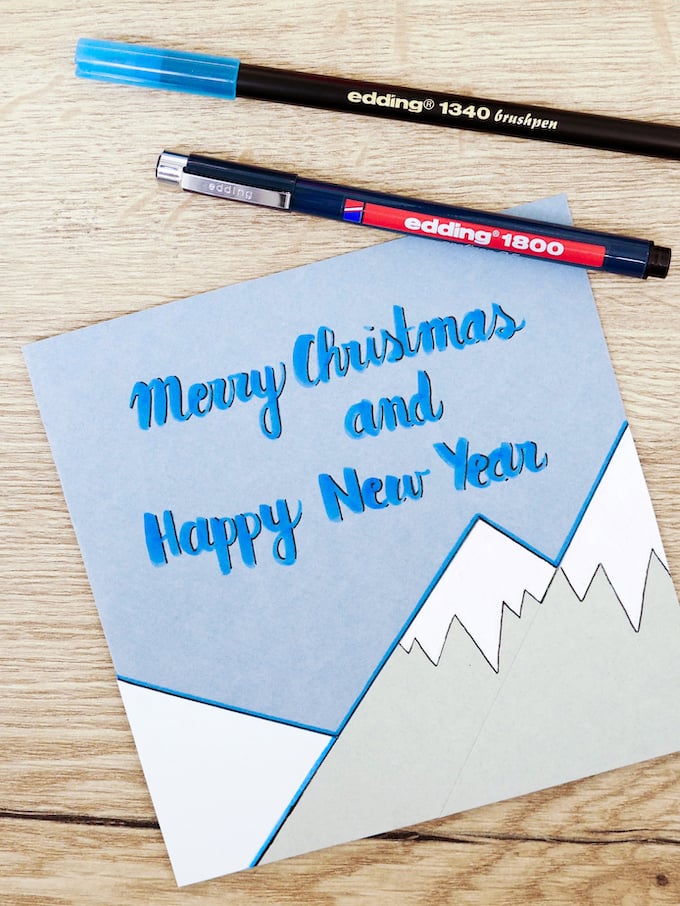 edding® 1340 brushpen
edding
edding® 1800
Merry Christmas
and
Happy New Year